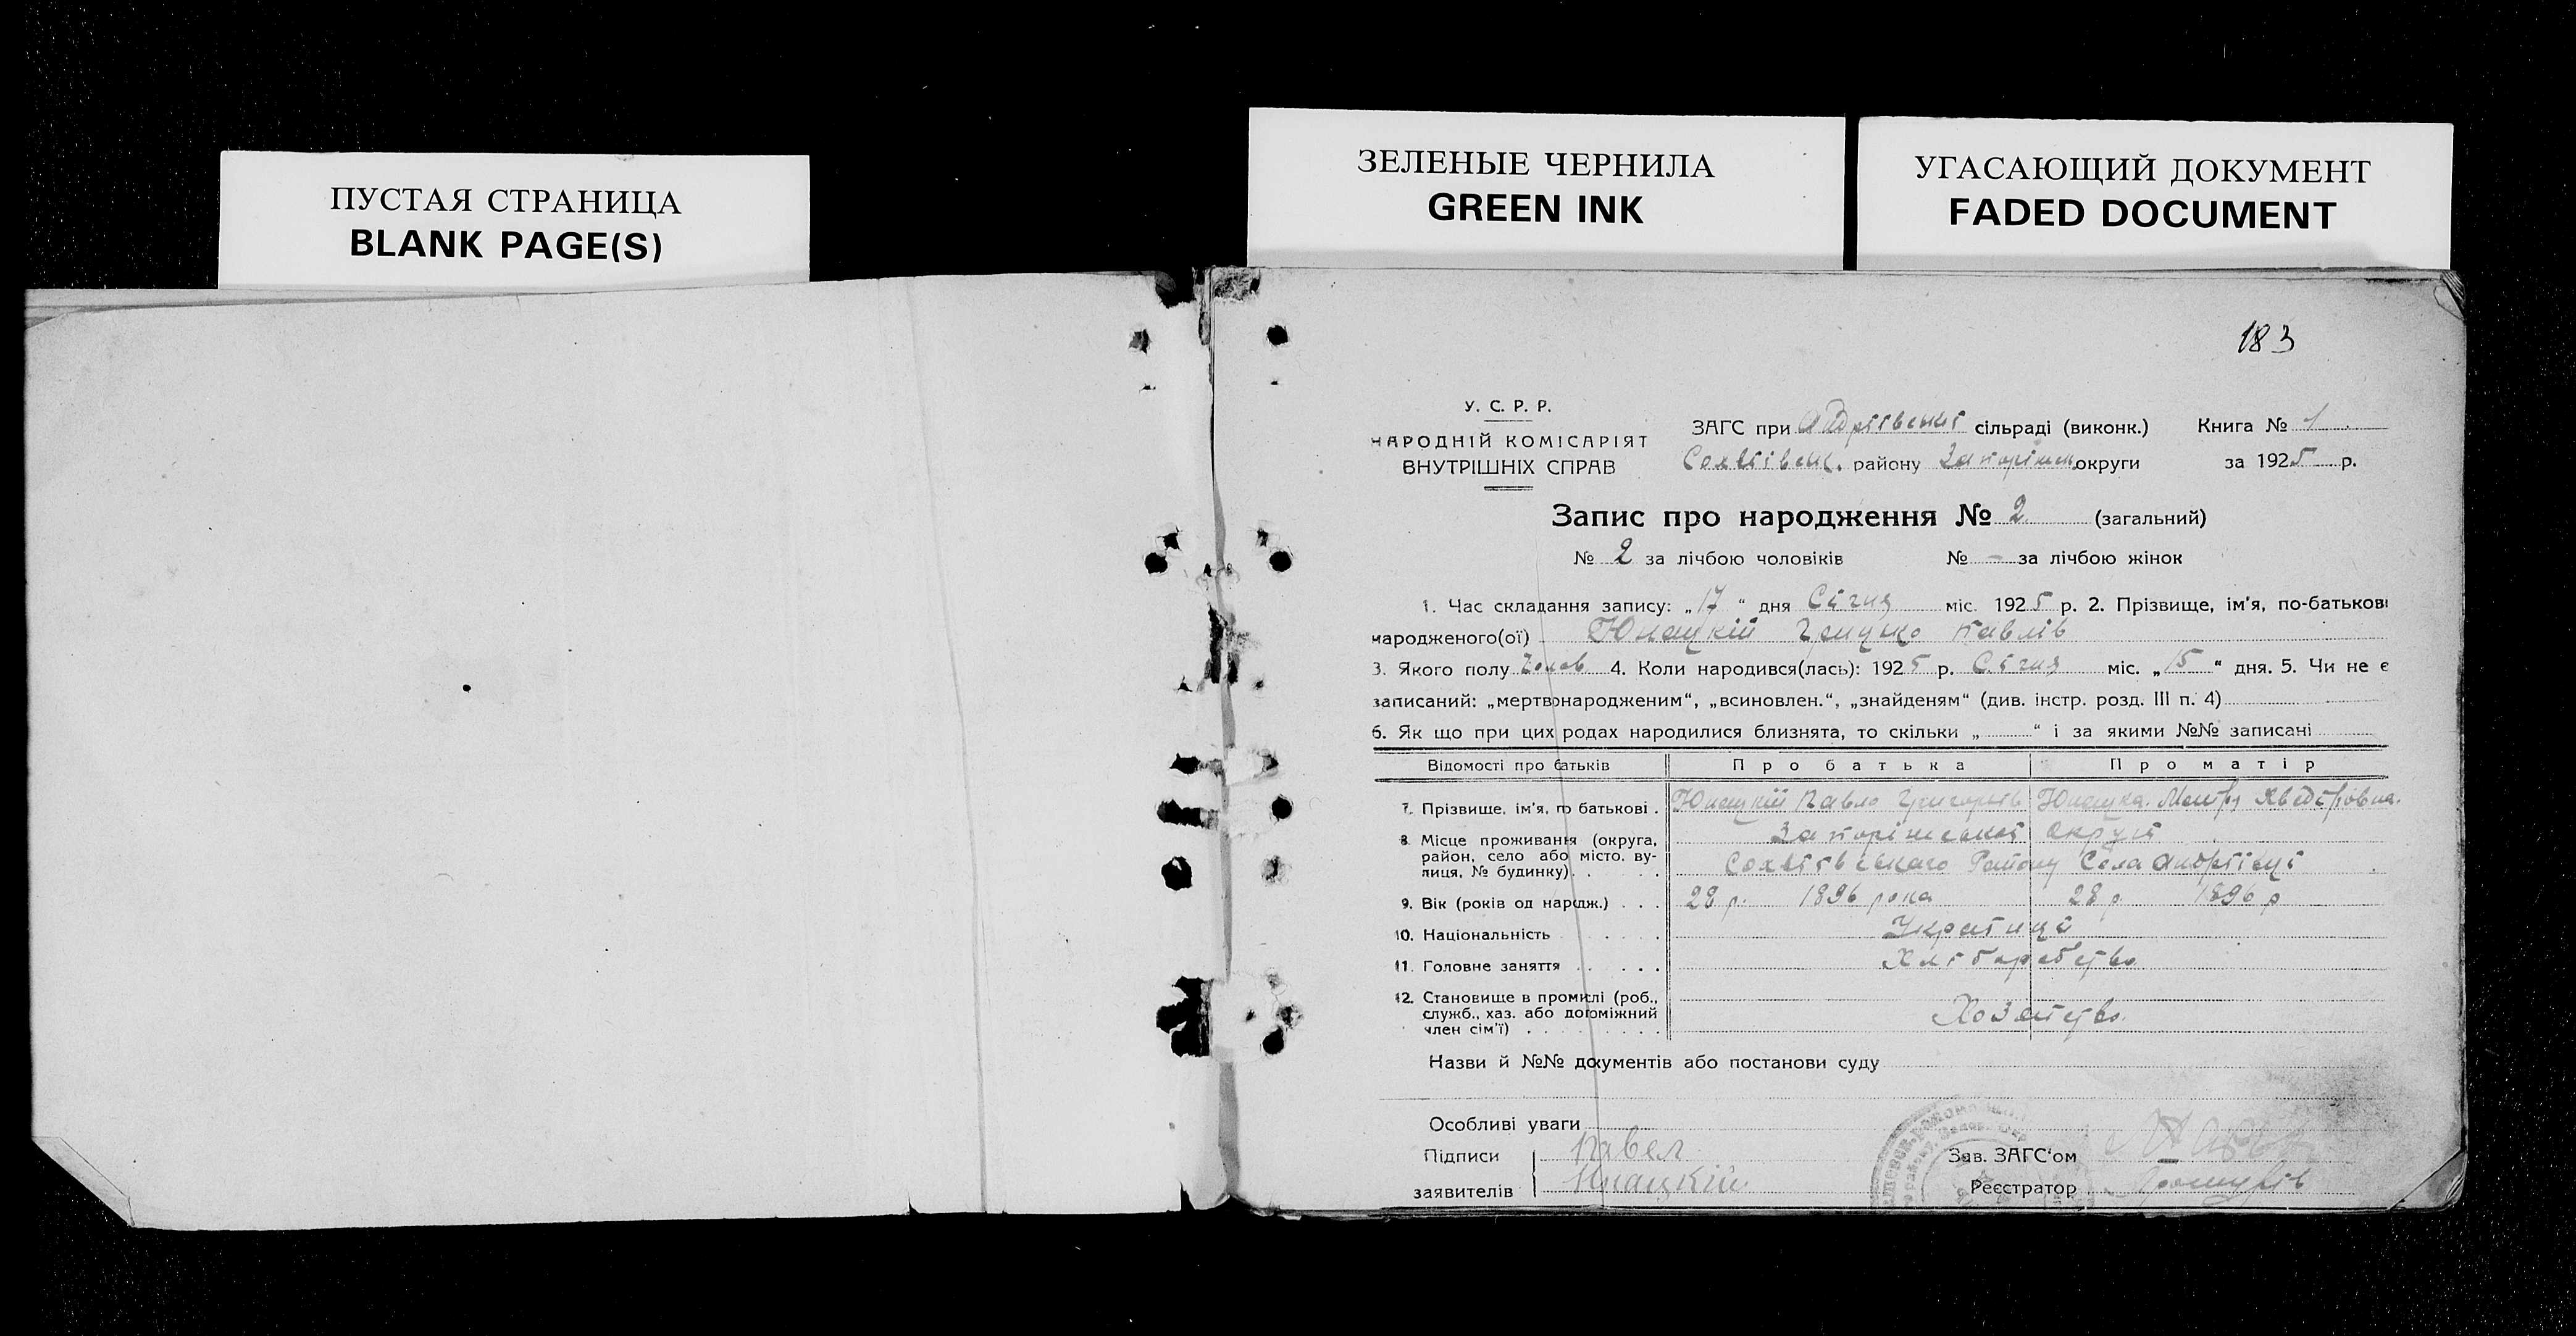 ПУСТАЯ СТРАНИЦА
BLANK PAGE(S)
ЗЕЛЕНЫЕ ЧЕРНИЛА
GREEN INK
УГАСАЮЩИЙ ДОКУМЕНТ
FADED DOCUMENT
183
У. С. Р. Р.
НАРОДНІЙ КОМІСАРІЯТ
ВНУТРІШНІХ СПРАВ
ЗАГС при сільраді (виконк.)
району округи
Книга № 1
за 1925 р.
Запис про народження № 2 (загальний)
№ 2 за лічбою чоловіків № – за лічбою жінок
1. Час складання запису: „17“ дня Січня міс. 1925 р. 2. Прізвище, ім'я, по-батькові
народженого(ої) Грицько Павлів
3. Якого полу Чолов. 4. Коли народився(лась): 1925 р. Січня міс. „15“ дня. 5. Чи не є
записаний: „мертвонародженим“, „всиновлен.“, „знайденям“ (див. інстр. розд. III п. 4)
6. Як що при цих родах народилися близнята, то скільки „ “ і за якими №№ записані
Відомості про батьків Про батька Про матір
7. Прізвище, ім'я, по батькові . Павло Григорів
8. Місце проживання (округа,
район, село або місто, вулиця, № будинку) . . Запоріжської округи
Району Села Андріївці
9. Вік (років од народж.) . . . 28 р. 1896 рока 28 р. 1896 р
10. Національність . . . . Українці
11. Головне заняття . . . . Хліборобство
12. Становище в промислі (роб.,
служб., хаз. або допоміжний
член сім'ї) . . . . . Хозяйство.
Назви й №№ документів або постанови суду
Особливі уваги
Підписи Павел
заявителів
Зав. ЗАГС'ом
Реєстратор